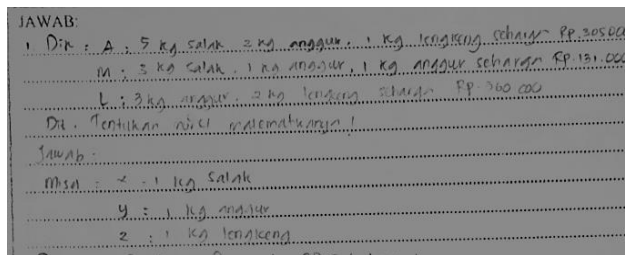 JAWAB:
1 Dik : A : 5 kg salak 2 kg anggur, 1 kg lengkeng seharga Rp.305000
M : 3 kg salak, 1 kg anggur, 1 kg anggur seharga Rp.131.000
L : 3 kg anggur, 2 kg lengkeng seharga Rp.360 000
Dit. Tentukan matematikanya!
Jawab.
misa : x : 1 kg salak
y : 1 kg anggur
z : 1 kg lengkeng